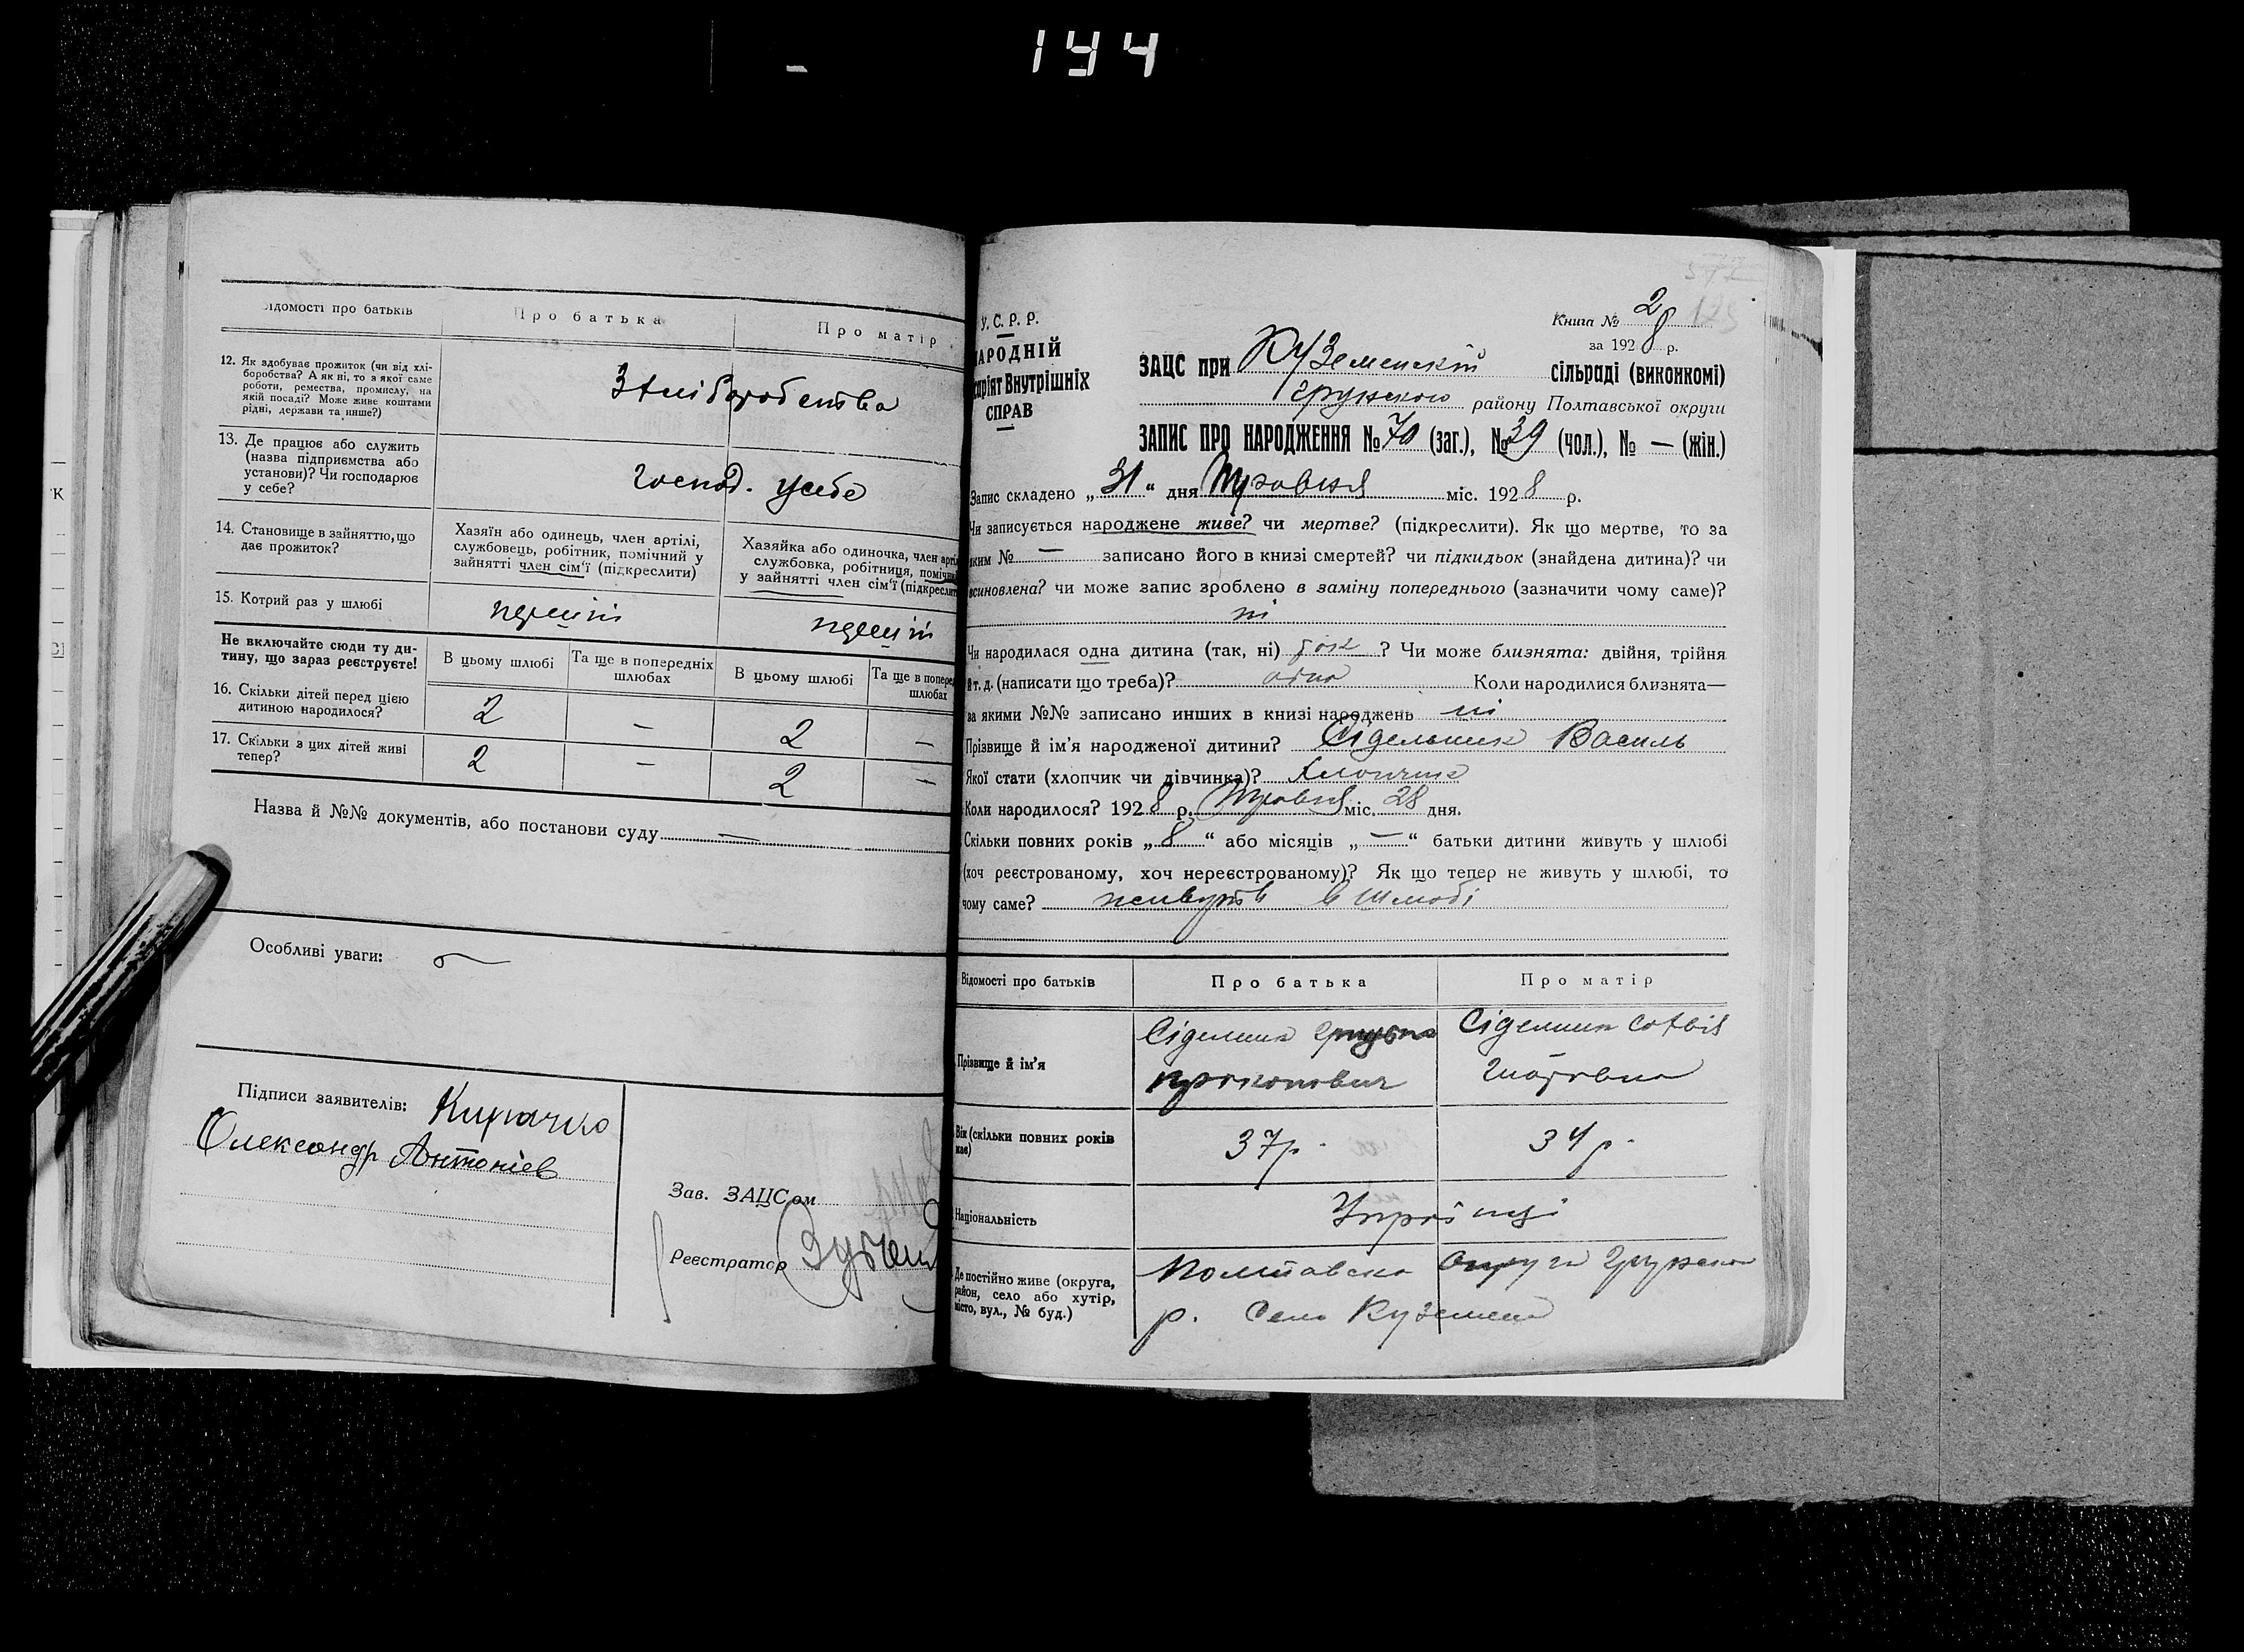 194
Відомості про батьків
Про батька
Про матір
12. Як здобуває прожиток (чи від хлі-
боробства? А як ні, то з якої саме
роботи, ремества, промислу, на
якій посаді? Може живе коштами
рідні, держави та инше?)
З хліборобства
13. Де працює або служить
(назва підприємства або
установи)? Чи господарює
у себе?
господ. у себе
14. Становище в зайняттю, що
дає прожиток?
Хазяїн або одинець, член артілі,
службовець, робітник, помічний у
зайнятті член сім'ї (підкреслити)
Хазяйка або одиночка, член арті
службовка, робітниця, помічна
у зайнятті член сім'ї (підкреслит
15. Котрий раз у шлюбі
перший
перший
Не включайте сюди ту ди-
тину, що зараз реєструєте!
В цьому шлюбі
Та ще в попередніх
шлюбах
В цьому шлюбі
Та ще в поперед
шлюбах
16. Скільки дітей перед цією
дитиною народилося?
2 — 2 —
17. Скільки з цих дітей живі
тепер?
2 — 2 —
Назва й №№ документів, або постанови суду —
Особливі уваги:
Підписи заявителів:
Олександр Антоніев
Зав. ЗАЦСом
Реєстратор
У. С. Р. Р.
НАРОДНІЙ
саріят Внутрішніх
СПРАВ
Книга № 2
за 1928 р.
ЗАЦС при Куземенскій сільраді (виконкомі)
грунського району Полтавської округи
ЗАПИС ПРО НАРОДЖЕННЯ № 70 (заг.), № 39 (чол.), № — (жін.)
Запис складено „31“ дня Травня міс. 1928 р.
Чи записується народжене живе? чи мертве? (підкреслити). Як що мертве, то за
яким № — записано його в книзі смертей? чи підкидьок (знайдена дитина)? чи
всиновлена? чи може запис зроблено в заміну попереднього (зазначити чому саме)?
ні
Чи народилася одна дитина (так, ні) так ? Чи може близнята: двійня, трійня
й т. д. (написати що треба)? одна Коли народилися близнята—
за якими №№ записано инших в книзі народжень ні
Прізвище й ім'я народженої дитини? Сідельник Василь
Якої стати (хлопчик чи дівчинка)? Хлопчик
Коли народилося? 1928 р. Травня міс. 28 дня.
Скільки повних років „8“ або місяців „—“ батьки дитини живуть у шлюбі
(хоч реєстрованому, хоч нереєстрованому)? Як що тепер не живуть у шлюбі, то
чому саме? живуть в шлюбі
Відомості про батьків
Про батька
Про матір
Прізвище й ім'я
Сідельник
прокопович
Сідельник софія
Вік (скільки повних років
має)
37 р.
34 р.
Національність
Україпці
Де постійно живе (округа,
район, село або хутір,
місто, вул., № буд.)
Полтавска округа Грунскои
р. село Куземен